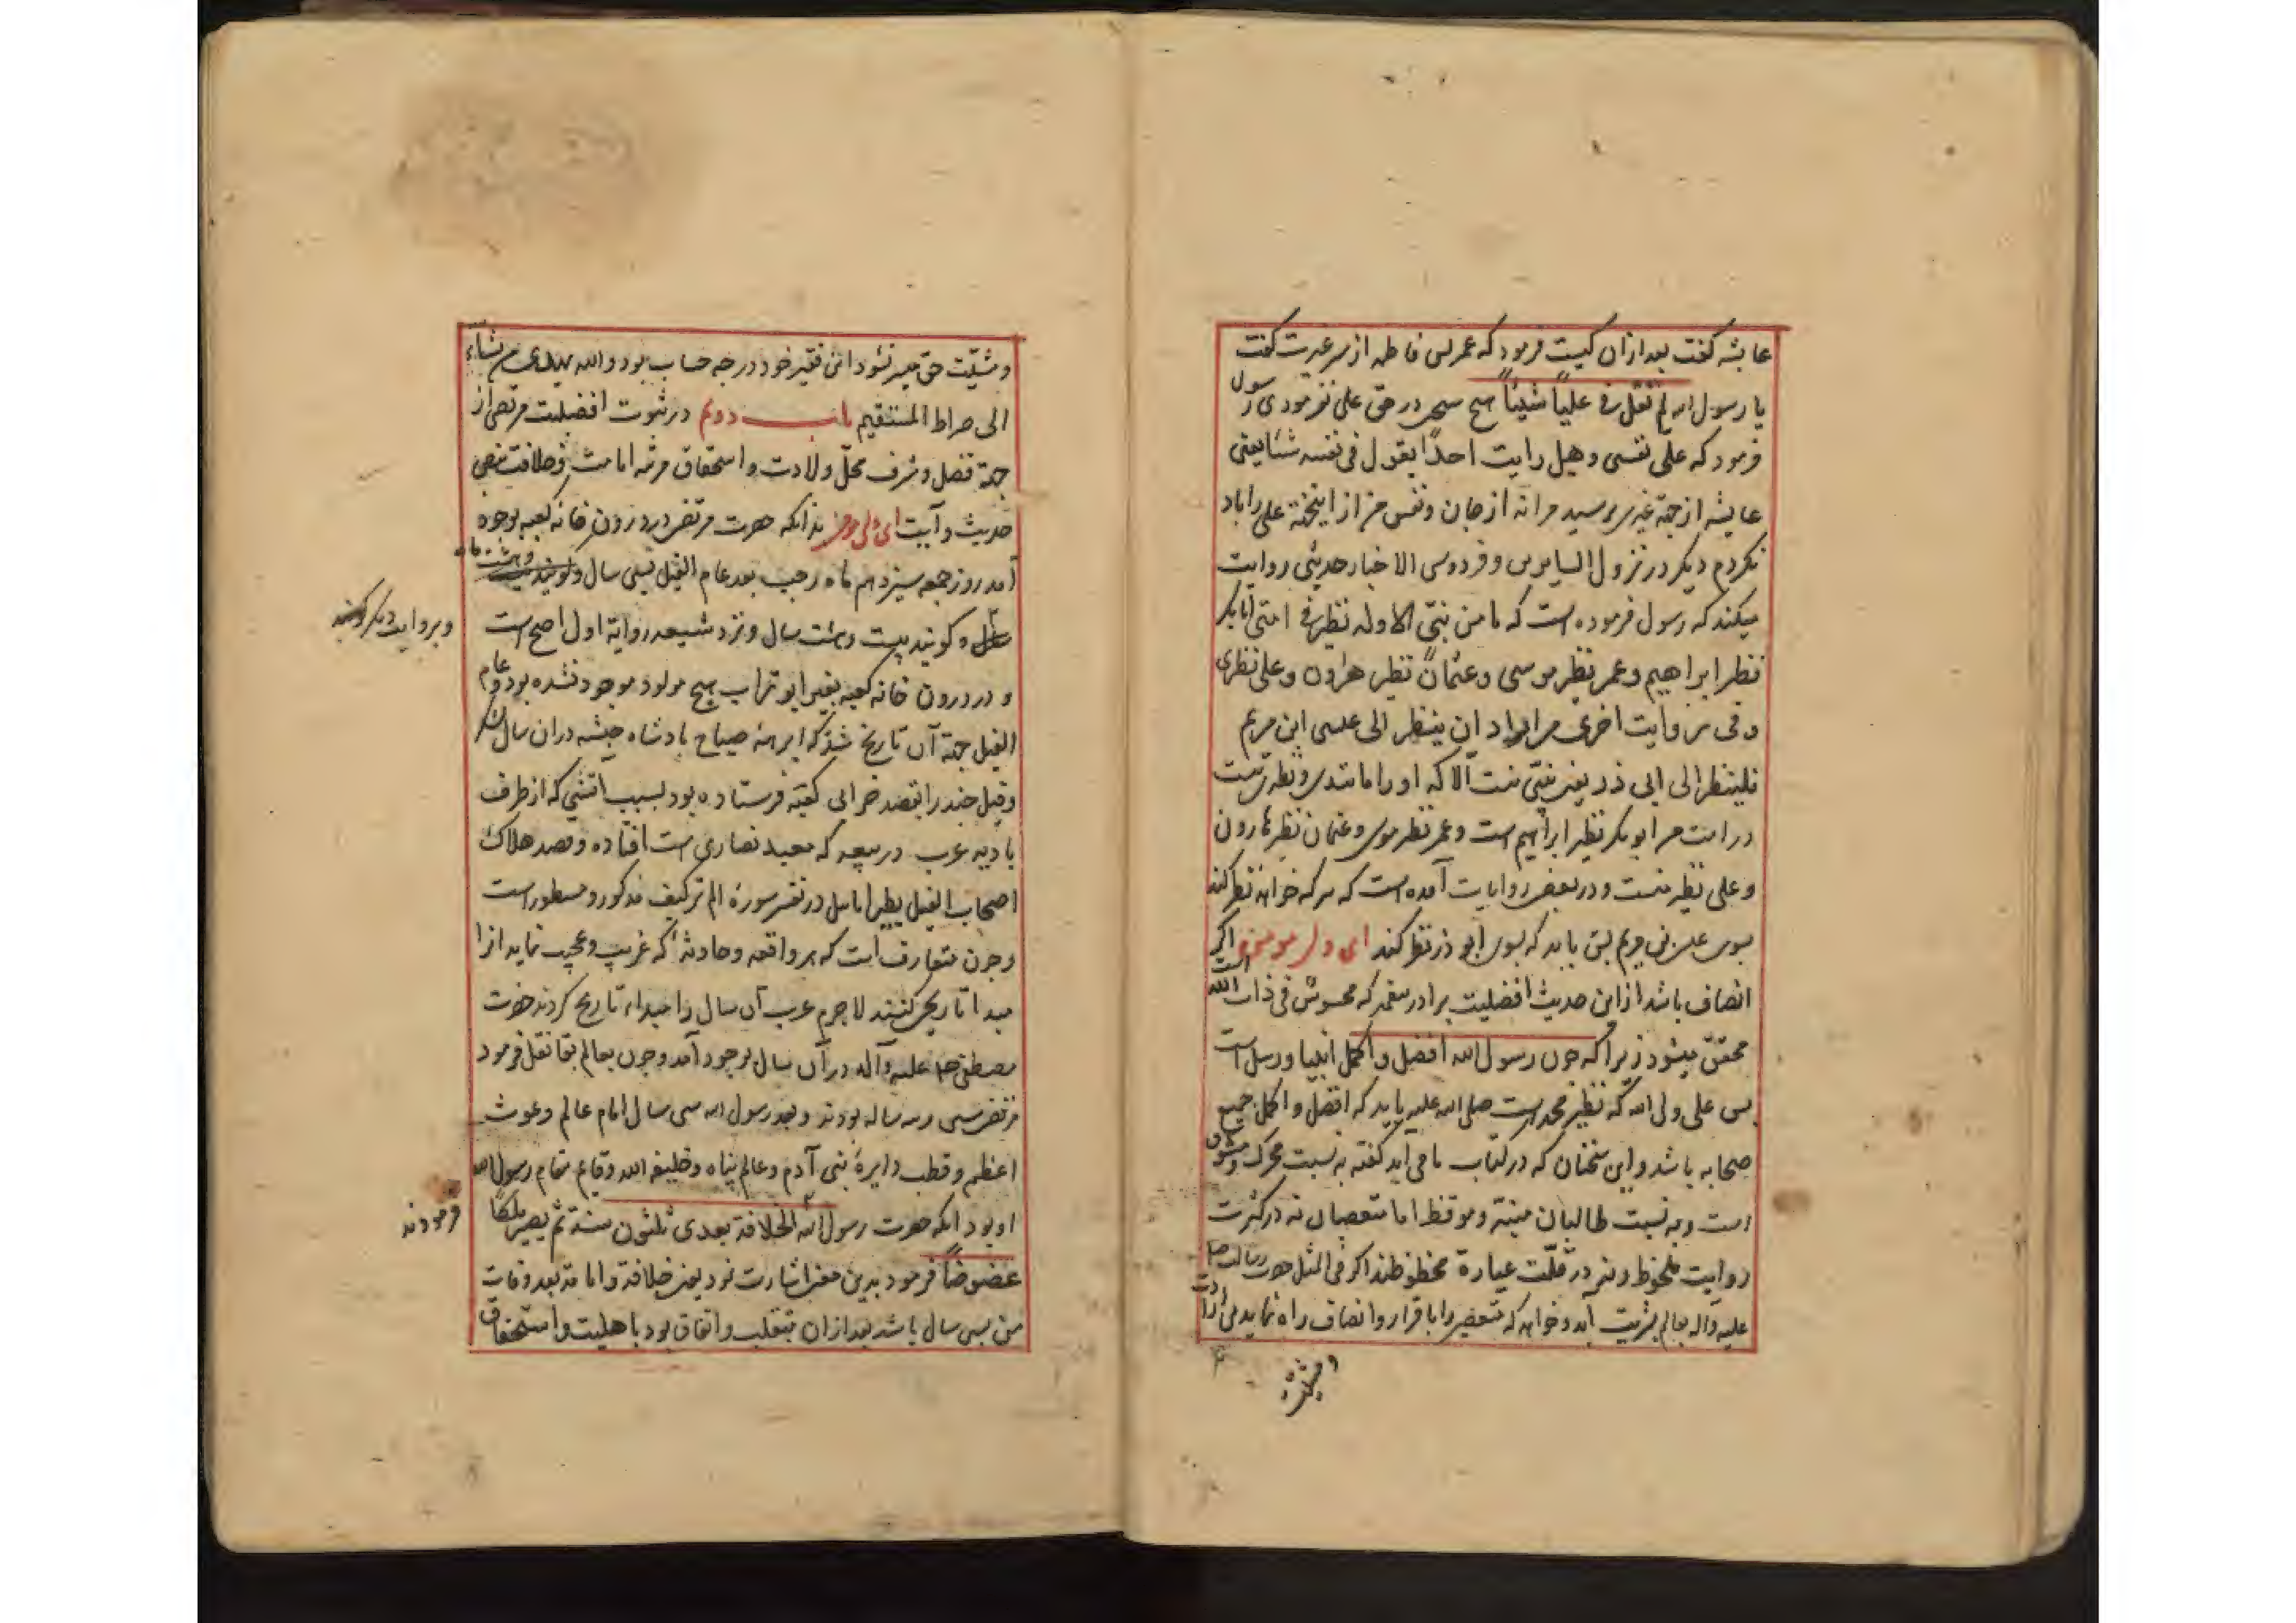 عایشه کفت بعد ازان کیست فرمود که عمر پس فاطمه از سر غیرت کفت
یا رسول الله لم تقل فی علیاً شیئاً هیچ سخن در حق علی نفرمودی رسول
فرمود که علی نفسی وهل رایت احداً یقول فی نفسه شئا یعنی
عایشه از جهة
نکردم دیکر در نزول السایرین و فردوس الاخبار حدیثی روایت
میکند که رسول فرموده است که ما من نبی الا وله نظیر فی امتی ابابکر
نظر ابراهیم و عمر نظیر موسی و عثمان نظیر هرون وعلی نظیری
وفی روایت اخری من اراد ان ینظر الی عیسی ابن مریم
فلینظر الی ابی ذر یعنی نبیی نیست الا که او را مانندی و نظیریست
در امت من ابوبکر نظیر ابراهیم است وعمر نظیر موسی وعثمان نظیر هارون
وعلی نظیر منست ودر بعضی روایات آمده است که هر که خواهد نظر کند
بسوی عیسی بن مریم پس باید که بسوی ابو ذر نظر کند ای ولی موحد اکر
انصاف باشد ازین حدیث افضلیت برادر پیغمبر که ممسوس فی ذات الله است
محقق میشود زیرا که چون رسول الله افضل و اکمل انبیا ورسل است
پس علی ولی الله که نظیر محمد است صلی الله علیه باید که افضل و اکمل جمیع
صحابه باشد واین سخنان که در کتاب ما می آید کفته به نسبت محرک ومشوق
است وبه نسبت طالبان منبه وموقظ اما متعصبان نه در کثرت
روایت ملحوظ ونه در قلت عبارة محظوظند اکر فی المثل حضرت رسالت صلی
علیه واله بعالم بشریت آید وخواهد که متعصبی را با قرار وانصاف راه نماید بی ارادت
ومشیت حق میسر نشود این فقیر خود در چه حساب بود والله یهدی من یشاء
الی صراط المستقیم باب دوم در ثبوت افضلیت مرتضی از
جهة فضل وشرف محل ولادت واستحقاق مرتبه امامت وخلافت بنص
حدیث وآیت ای ولی موحد بدانکه حضرت مرتضی در درون خانه کعبه بوجود
آمد روز جمعه سیزدهم ماه رجب بعد عام الفیل بسی سال
وبروایت دیکر کویند
وکویند بیست وهشت سال ونزد شیعه روایة اول اصح است
ودر درون خانه کعبه بغیر ابو تراب هیچ مولود موجود نشده بود وعام
الفیل جهة آن تاریخ شد که ابرهه صباح پادشاه حبشه دران سال لشکر
وفیل چند را بقصد خرابی کعبه فرستاده بود بسبب اتشی که از طرف
بادیه عرب در بیعه که معبد نصاری است افتاده وقصه هلاک
اصحاب الفیل بطیراً ابابیل در تفسیر سورهٔ الم ترکیف مذکور ومسطور است
وچون متعارف است که هر واقعه وحادثهٔ که غریب وعجیب نماید انرا
مبدا تاریخ کنند لاجرم عرب آن سال را مبداء تاریخ کردند حضرت
مصطفی صلی علیه وآله در آن سال بوجود آمد وچون بعالم بقا نقل فرمود
مرتضی سی وسه ساله بودند وبعد رسول الله سی سال امام عالم وغوث
اعظم وقطب دایرهٔ بنی آدم وعالم پناه وخلیفه الله وقایم مقام رسول الله
او بود انکه حضرت رسول الله الخلافة بعدی ثلثون سنة ثم یصیر ملکاً
فرمودند
عضوضاً فرمود بدین معنی اشارت نمود یعنی خلافة وامامة بعد وفات
من سی سال باشد بعد ازان بتغلب واتفاق بود با هلیت واستحقاق